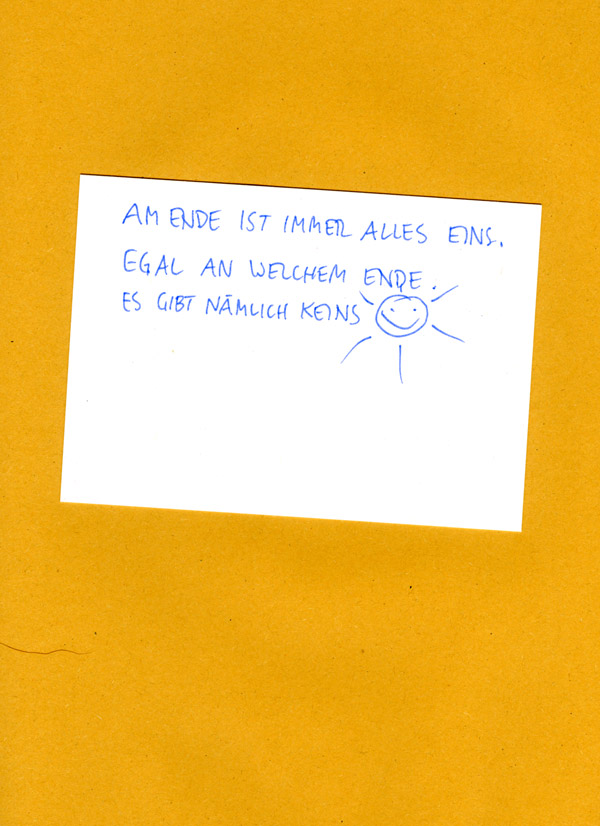 AM ENDE IST IMMER ALLES EINS.
EGAL AN WELCHEM ENDE.
ES GIBT NÄMLICH KEINS